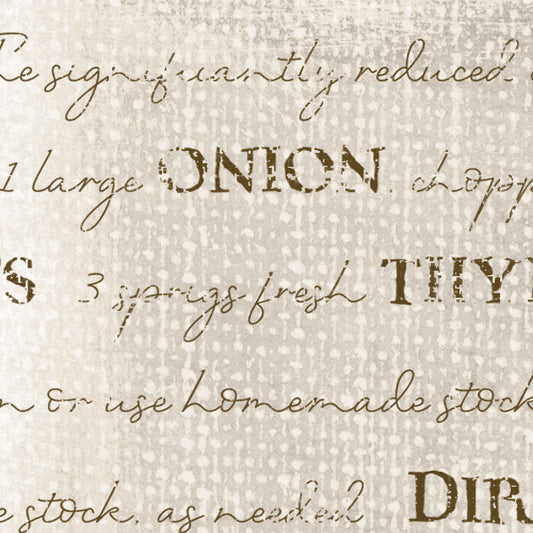 be significantly reduced
1 large ONION, chopp
S 3 sprigs fresh THY
n or use homemade stock
e stock, as needed DIR